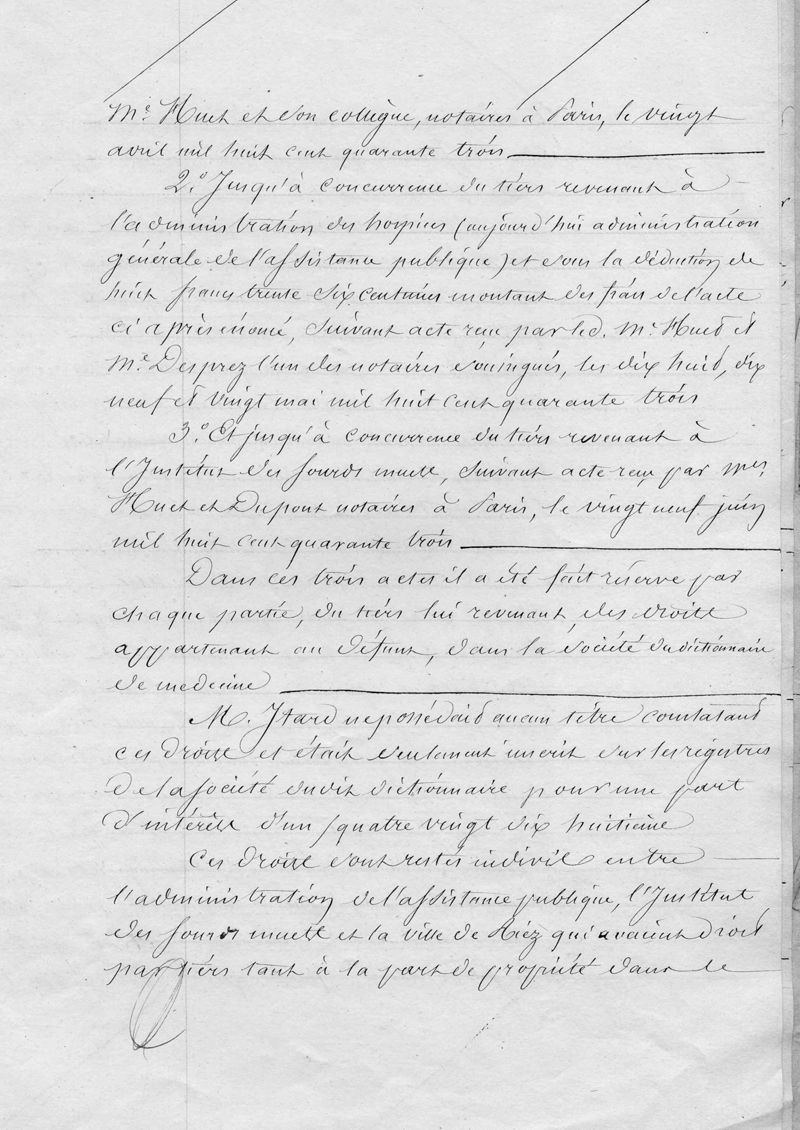 Me. Huet et son collègue, notaires à Paris, le vingt
avril mil huit cent quarante trois
2.° Jusqu'à concurrence du tiers revenant à
l'administration des hospices (aujourd'hui administration
générale de l'assistance publique) et sous la déduction de
huit francs trente six centimes montant des frais de l'acte
ci après énoncé, suivant acte reçu par led. Me. Huet et
Me. Desprez l'un des notaires soussignés, les dix huit, dix
neuf et vingt mai mil huit cent quarante trois
3.° Et jusqu'à concurrence du tiers revenant à
l'Institut des sourds muets, suivant acte reçu par Mes.
Huet et Dupont notaires à Paris, le vingt neuf juin
mil huit cent quarante trois
Dans ces trois actes il a été fait réserve par
chaque partie, du tiers lui revenant, des droits
appartenant au défunt, dans la société du dictionnaire
de medecine
M. Itard ne possédait aucun titre constatant
ces droits et était seulement inscrit sur les régistres
de la société dudit dictionnaire pour une part
d'intérêts d'un quatre vingt dix huitième
Ces droits sont restés indivis entre
l'administration de l'assistance publique, l'Institut
des sourds muets et la ville de Riez qui avaient droit
par tiers tant à la part de propriété dans le